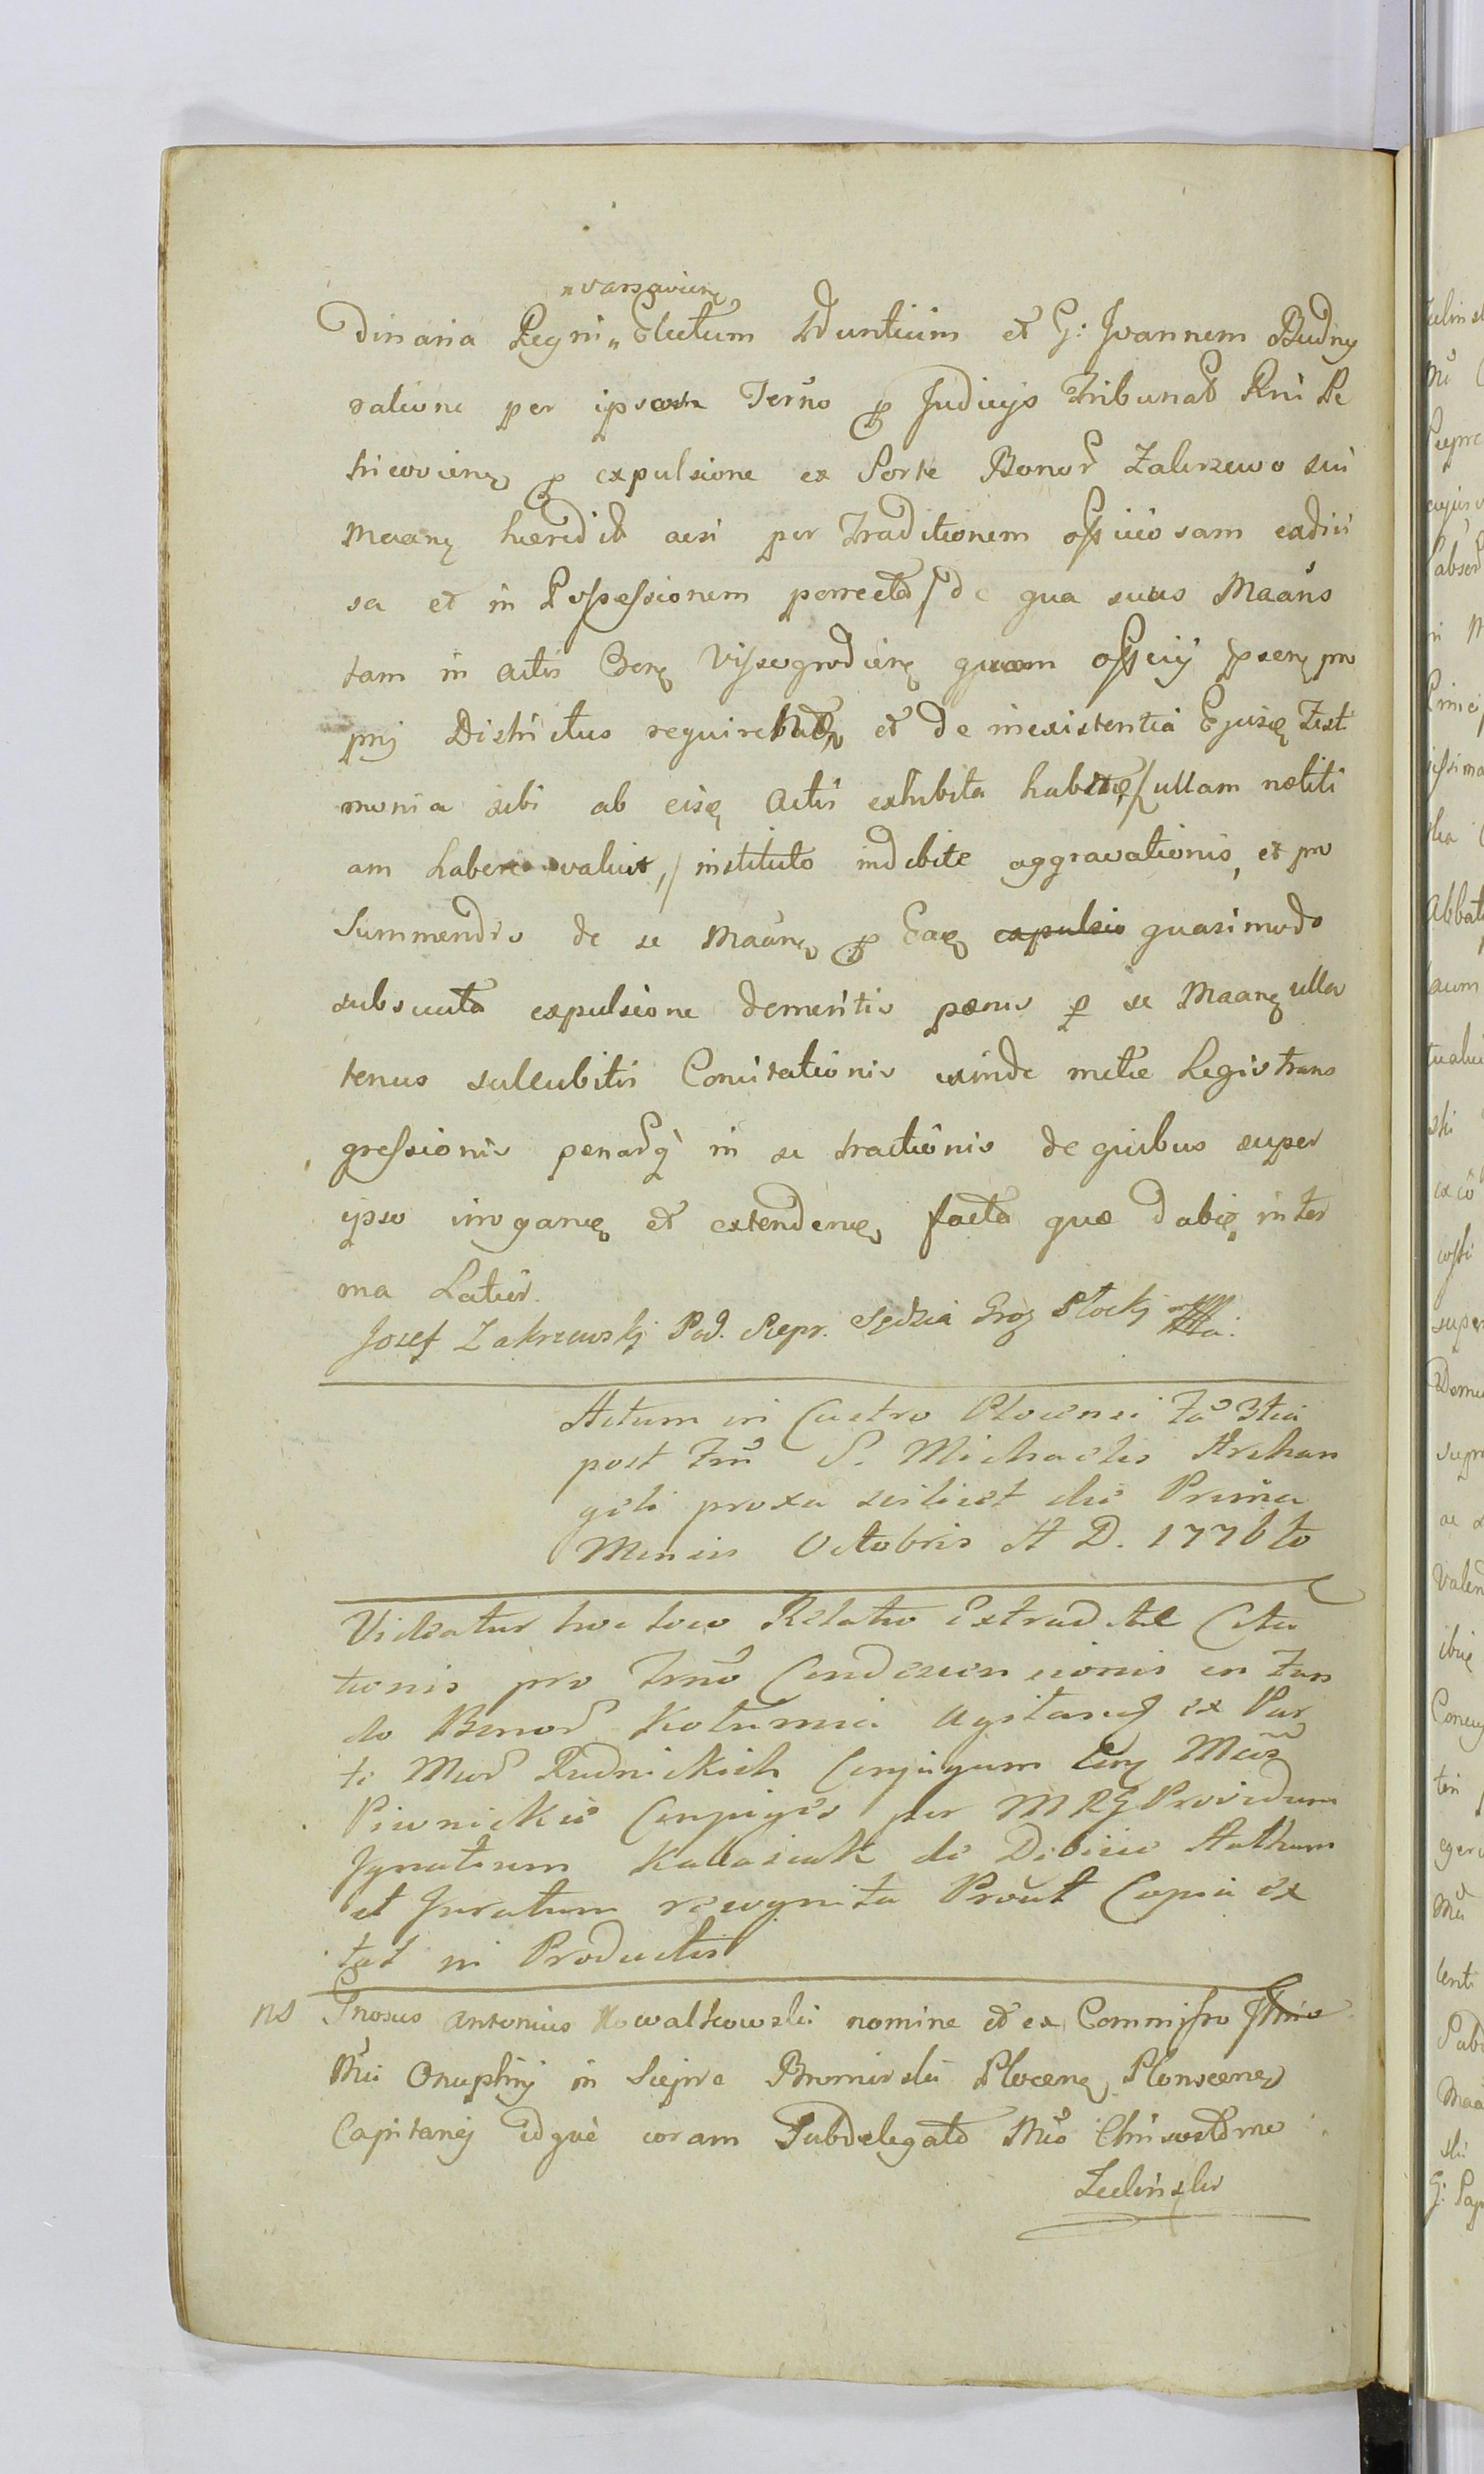 „varsavienę
dinaria Regni „ Electum Nuntium et G: Joannem Budny
ratione per ipsam Terno p Judicijs Tribunat Rni Pe
tricovienę p expulsione ex Sorte Bonor Zakrzewo sui
Maanę hæredit acsi per Traditionem officiosam eadivi
sa et in Possessionem porrecta / de qua suus Maans
tam in actis Grnę Vissogrodienę quam officij pserę pro
prij Districtus requirebat et de inexistentia Ejusę Testi
monia sibi ab eisę Actis exhibita habitę / ullam notiti
am habere valuit, / instituto indebite aggravationis, et pro
summendis de se Maanę p Eaę expulsio quasimodo
subsecuta expulsione demeritis pænis p se Maanę ulla
tenus succubitis Concitationis exinde metæ Legis trans
gressionis penarq in se tractionis de quibus super
ipso irroganę et extendenę facta quæ dabię inter
ma Latius.
Jozef Zakrzewskj Pod. Sierpr. Sędzia Groz Płockj
Actum in Castro Plocensi fa 3tia
post Fm S. Michaelis Archan
geli proxa scilicet die Prima
Mensis Octobris A D. 1776to
Videatur hoc loco Relatio Extraditæ Cita
tionis pro Trno Condescensionis in Fun
do Bonor Kotunnia agitanę ex Par
te Mcor Rudnickich Conjugum Cory Mcos
Piwnickie Conjuges per MRG Providum
Ignatium Kallasiak de Dobisie Authum
et Juratum recognita Prout Copia ex
tat in Productis
ns Gnosus Antonius Kowalkowski nomine et ex Commisso
Mci Onuphrij in Sierpc Bromirski Plocenę Plonscenę
Capitanej idque coram Subdelegato Mco Chrisostomo
Zielinski